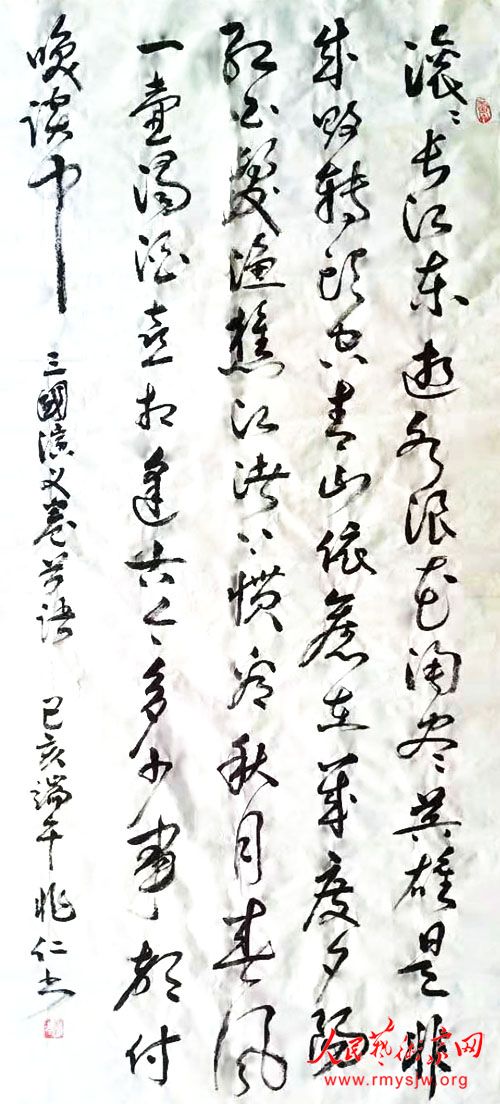 滚滚长江东逝水浪花淘尽英雄是非
成败转头空青山依舊在幾度夕陽
红白髮渔樵江渚上惯看秋月春风
一壶濁酒喜相逢古今多少事都付
笑谈中
三國演义卷首语 己亥端午 兆仁书
人民藝術家网
www.rmysjw.org